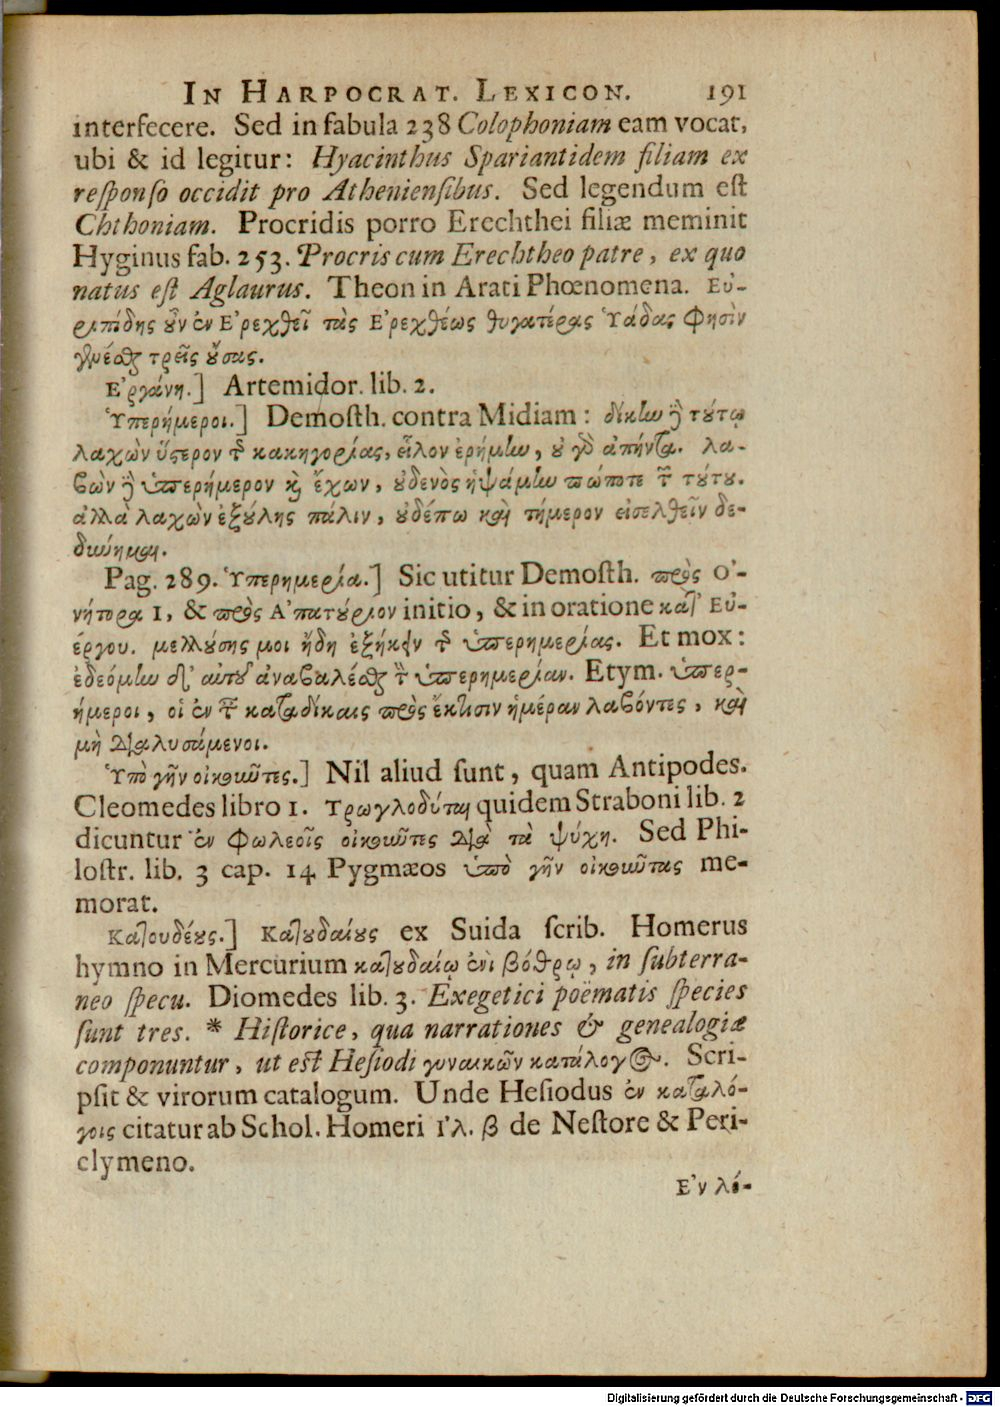 In Harpocrat. Lexicon. 191
interfecere. Sed in fabula 238 Colophoniam eam vocat,
ubi & id legitur: Hyacinthus Spariantidem filiam ex
responso occidit pro Atheniensibus. Sed legendum est
Chthoniam. Procridis porro Erechthei filiæ meminit
Hyginus fab. 253. Procris cum Erechtheo patre, ex quo
natus est Aglaurus. Theon in Arati Phœnomena. Εὐ-
ριπίδης οὖν ἐν Ε᾿ρεχθεῖ τὰς Ε᾿ρεχθέως θυγατέρας Ὑάδας φησὶν
γενέσθαι τρεῖς οὔσας.
Ε᾿ργάνη.] Artemidor. lib. 2.
Ὑπερήμεροι.] Demosth. contra Midiam: δίκην δὲ τούτῳ
λαχὼν ὕστερον τῆς κακηγορίας, εἷλον ἐρήμην, οὐ γὰρ ἀπήντα. λα-
βὼν δὲ ὑπερήμερον καὶ ἔχων, οὐδενὸς ἡψάμην πώποτε τῶν τούτου.
ἀλλὰ λαχὼν ἐξούλης πάλιν, οὐδέπω καὶ τήμερον εἰσελθεῖν δε-
δύνημαι.
Pag. 289. Ὑπερημερία.] Sic utitur Demosth. πρὸς Ο᾿-
νήτορα 1, & πρὸς Α᾿πατούριον initio, & in oratione κατ᾿ Εὐ-
έργου. μελλούσης μοι ἤδη ἐξήκειν τῆς ὑπερημερίας. Et mox:
ἐδεόμην δι᾿ αὐτοῦ ἀναβαλέσθαι τὴν ὑπερημερίαν. Etym. ὑπερ-
ήμεροι, οἱ ἐν ταῖς καταδίκαις πρὸς ἔκτισιν ἡμέραν λαβόντες, καὶ
μὴ διαλυσάμενοι.
Ὑπὸ γῆν οἰκοῦντες.] Nil aliud sunt, quam Antipodes.
Cleomedes libro 1. Τρωγλοδύται quidem Straboni lib. 2
dicuntur ἐν φωλεοῖς οἰκοῦντες διὰ τὰ ψύχη. Sed Phi-
lostr. lib. 3 cap. 14 Pygmæos ὑπὸ γῆν οἰκοῦντας me-
morat.
Κατουδέους.] Κατουδαίους ex Suida scrib. Homerus
hymno in Mercurium κατουδαίῳ ἐνὶ βόθρῳ, in subterra-
neo specu. Diomedes lib. 3. Exegetici poëmatis species
sunt tres. * Historice, qua narrationes & genealogiæ
componuntur, ut est Hesiodi γυναικῶν κατάλογος. Scri-
psit & virorum catalogum. Unde Hesiodus ἐν καταλό-
γοις citatur ab Schol. Homeri Ι᾿λ. β de Nestore & Peri-
clymeno.
Ε᾿ν λό-
Digitalisierung gefördert durch die Deutsche Forschungsgemeinschaft - DFG